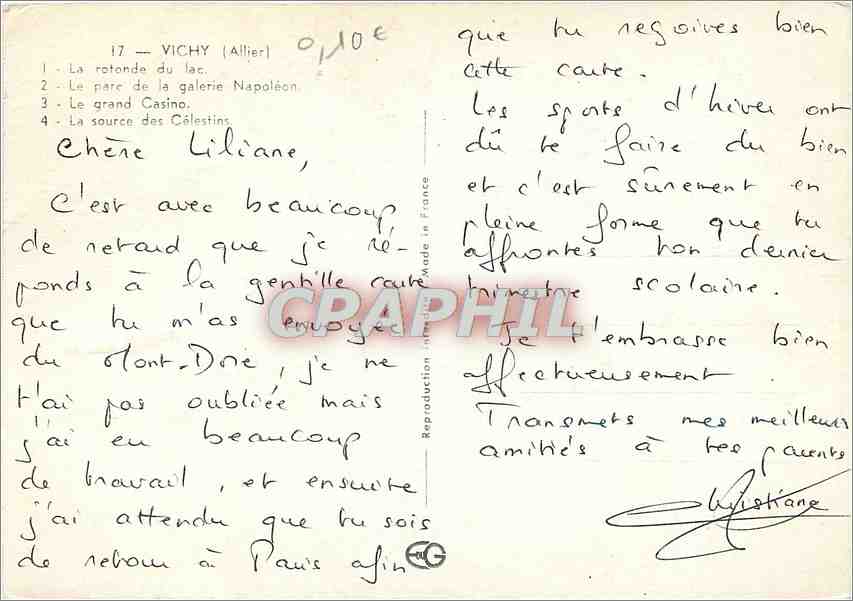 17 — VICHY (Allier)
0,10€
1 - La rotonde du lac.
2 - Le parc de la galerie Napoléon.
3 - Le grand Casino.
4 - La source des Célestins.
Chère Liliane,
C'est avec beaucoup
de retard que je ré-
ponds à la gentille carte
que tu m'as envoyée
du Mont-Dore, je ne
t'ai pas oubliée mais
j'ai eu beaucoup
de travail, et ensuite
j'ai attendu que tu sois
de retour à Paris afin
que tu reçoives bien
cette carte.
Les sports d'hiver ont
dû te faire du bien
et c'est sûrement en
pleine forme que tu
affrontes ton dernier
trimestre scolaire.
Je t'embrasse bien
affectueusement.
Transmets mes meilleurs
amitiés à tes parents
Christiane
Reproduction interdite - Made in France
CPAPHIL